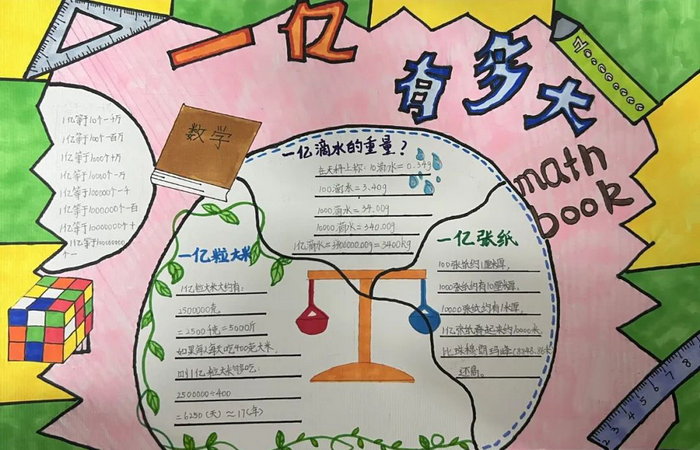 一亿
有多大
数学
math
book
1亿等于10个一千万
1亿等于100个一百万
1亿等于1000个十万
1亿等于10000个一万
1亿等于100000个一千
1亿等于1000000个一百
1亿等于10000000个十
1亿等于100000000
个一
一亿滴水的重量？
在天秤上称：10滴水=0.34g
100滴水=3.40g
1000滴水=34.00g
10000滴水=340.00g
1亿滴水=3400000.00g=3400kg
一亿粒大米
1亿粒大米大约有：
2500000克
=2500千克=5000斤
如果每人每天吃400克大米，
2500000÷400
=6250(天)≈17(年)
一亿张纸
100张纸约1厘米厚，
1000张纸约有10厘米厚，
10000张纸约有1米厚，
1亿张纸叠起来约10000米，
比珠穆朗玛峰(8848.86米)
还高。
7 8